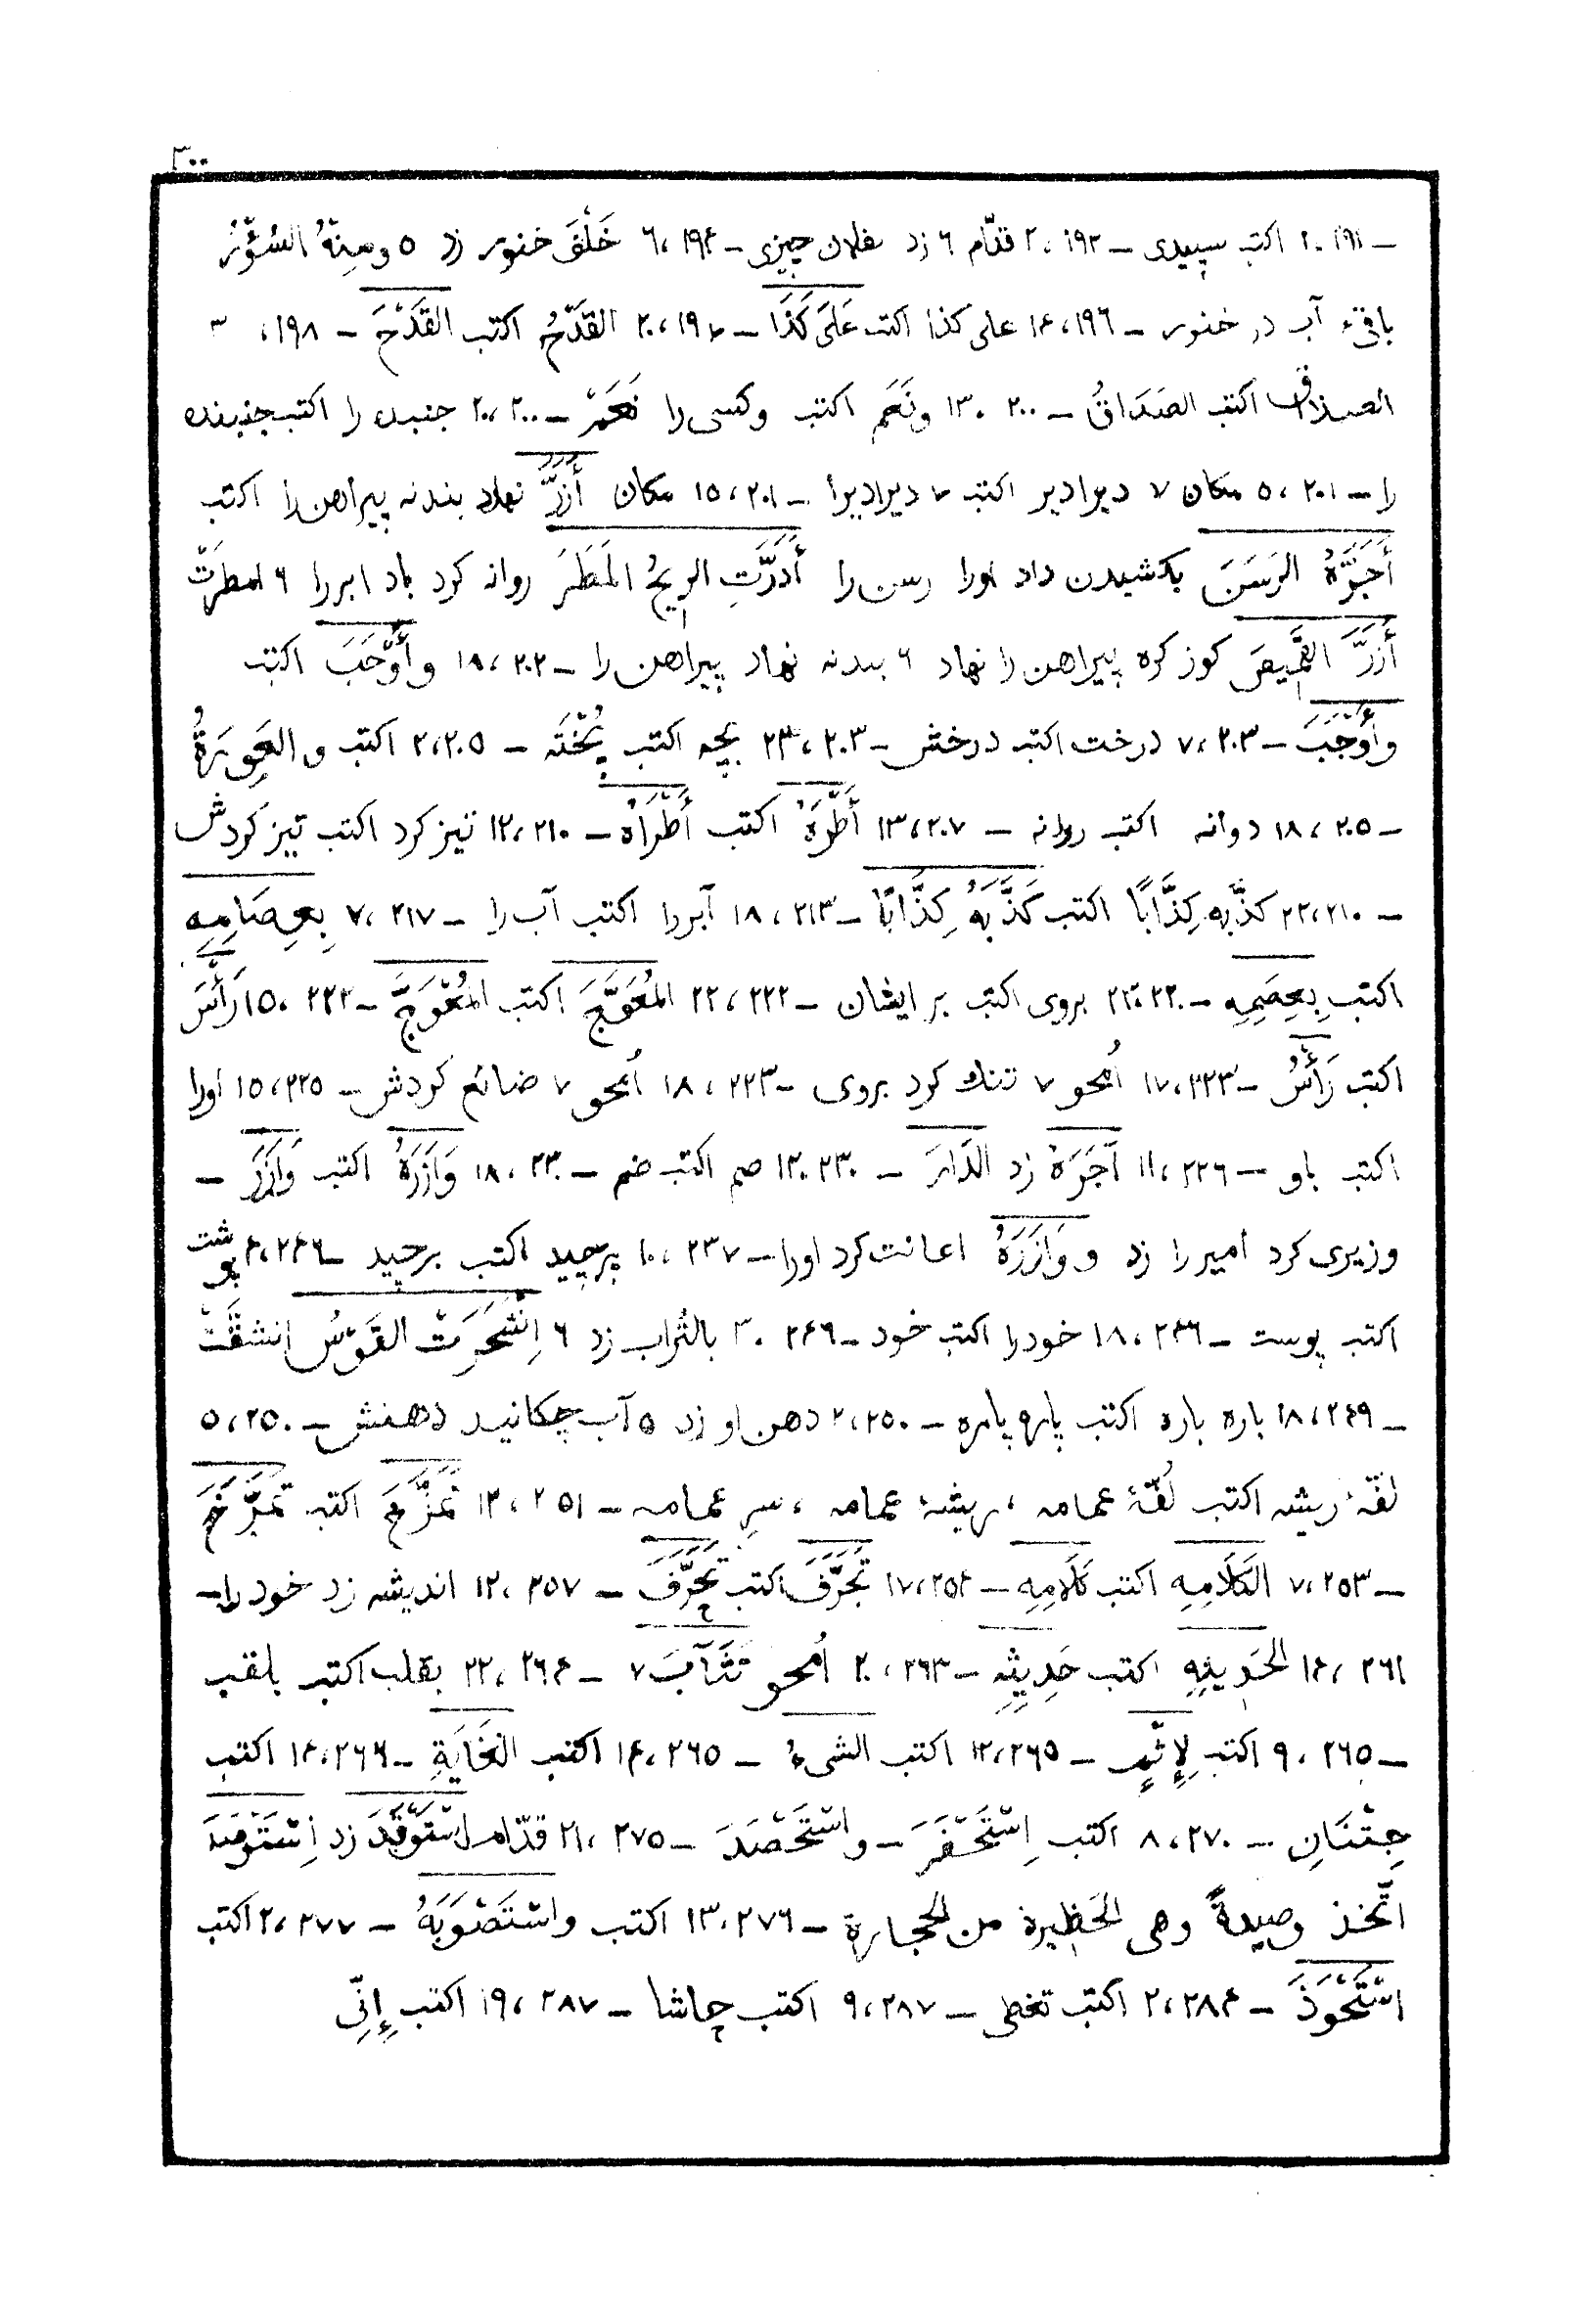 ٣٠٠
— ٢٠،١٩١ اکتب سپیدی — ٢،١٩٢ قدّام ٦ زد بفلان چیزی — ٦،١٩٤ خَلْفَ خنور زد ٥ ومِنْهُ السُؤْرُ
باقیء آب در خنور — ١٤،١٩٦ علی کذا اکتب عَلَیَّ کَذَا — ٢٠،١٩٧ القَدّحُ اکتب القَدَّحَ — ٣،١٩٨
الصذاق اکتب الصَدَاقُ — ١٣،٢٠٠ ونَعَم اکتب وکسی را نَعَمْ — ٢٠،٢٠٠ جنبده را اکتب جنبنده
را — ٥،٢٠١ مکان ٧ دیرادیر اکتب ٧ دیرادیرا — ١٥،٢٠١ مکان أَزَرَّ نهاد بندنه پیراهن را اکتب
أَجَرَّهُ الرَسَنَ بکشیدن داد اورا رسن را أَدَرَّتِ الریحُ المَطَرَ روانه کرد باد ابر را ٦ امطَرَتْ
أَزَرَّ القَمِیصَ کوز کره پیراهن را نهاد ٦ بندنه نهاد پیراهن را — ١٨،٢٠٢ وأَوْجَبَ اکتب
وأَوْجَبَ — ٧،٢٠٣ درخت اکتب درخش — ٢٣،٢٠٣ بچه اکتب پُخْتَه — ٢،٢٠٥ اکتب والعَوِیرَةُ
— ١٨،٢٠٥ دوانه اکتب روانه — ١٣،٢٠٧ أَطْرَهُ اکتب أَطْرَاهُ — ١٢،٢١٠ تیز کرد اکتب تیز کردش
— ٢٢،٢١٠ کذّبه کِذَّابًا اکتب کَذَّبَهُ کِذَّابًا — ١٨،٢١٣ آبررا اکتب آب را — ٧،٢١٧ بِعِصَامِهِ
اکتب بِعِصَمِهِ — ٢٢،٢٢٠ بروی اکتب بر ایشان — ٢٢،٢٢٢ المُعَوَّجَ اکتب المُعْوَجَّ — ١٥،٢٢٣ رَأَسَ
اکتب رَأَسُ — ١٧،٢٢٣ اُمحو ٧ تنك کرد بروی — ١٨،٢٢٣ اُمحو ٧ ضائع کردش — ١٥،٢٢٥ اورا
اکتب باو — ١١،٢٢٦ آجَرَهُ زد الدَارَ — ١٣،٢٣٠ صم اکتب ضم — ١٨،٢٣٠ وَازَرَهُ اکتب وَازَرَ —
وزیری کرد امیر را زد و وَازَرَهُ اعانت کرد اورا — ١٠،٢٣٧ پرچید اکتب برچید — ٤،٢٤٦ پوشت
اکتب پوست — ١٨،٢٤٦ خودرا اکتب خود — ٣،٢٤٦ بالتُراب زد ٦ اِنْشَجَرَتْ القَوْسُ انشقَّتْ
— ١٨،٢٤٩ باره باره اکتب پاره پاره — ٢،٢٥٠ دهن او زد ٥ آب چکانید دهنش — ٥،٢٥٠
لفّهٔ ریشه اکتب لُفّهٔ عمامه، ریشهٔ عمامه، سرِ عمامه — ١٢،٢٥١ تَمَزَّعَ اکتب تَمَرَّخَ
— ٧،٢٥٣ الکَلَامِهِ اکتب کَلَامِهِ — ١٧،٢٥٤ تَجَرَّفَ اکتب تَحَرَّفَ — ١٢،٢٥٧ اندیشه زد خود را —
١٤،٢٦١ الحَدِیثِهِ اکتب حَدِیثِهِ — ٢٠،٢٦٣ اُمحو تَثَآبَ ٧ — ٢٢،٢٦٤ بقلب اکتب بلقب
— ٩،٢٦٥ اکتب لِإِثْمٍ — ١٢،٢٦٥ اکتب الشیءُ — ١٤،٢٦٥ اکتب الغَایَةِ — ١٤،٢٦٦ اکتب
جِتْنَانِ — ٨،٢٧٠ اکتب اِسْتَحْفَرَ — واسْتَحْصَدَ — ٢١،٢٧٥ قدّام اسْتَوْقَدَ زد اِسْتَوْصَدَ
اتّخذ وصیدةً وهی الحَظِیرة من الحجارة — ١٣،٢٧٦ اکتب واسْتَصْوَبَهُ — ٢،٢٧٧ اکتب
اسْتَحْوَذَ — ٢،٢٨٤ اکتب تغطی — ٩،٢٨٧ اکتب چاشا — ١٩،٢٨٧ اکتب إِنِّی